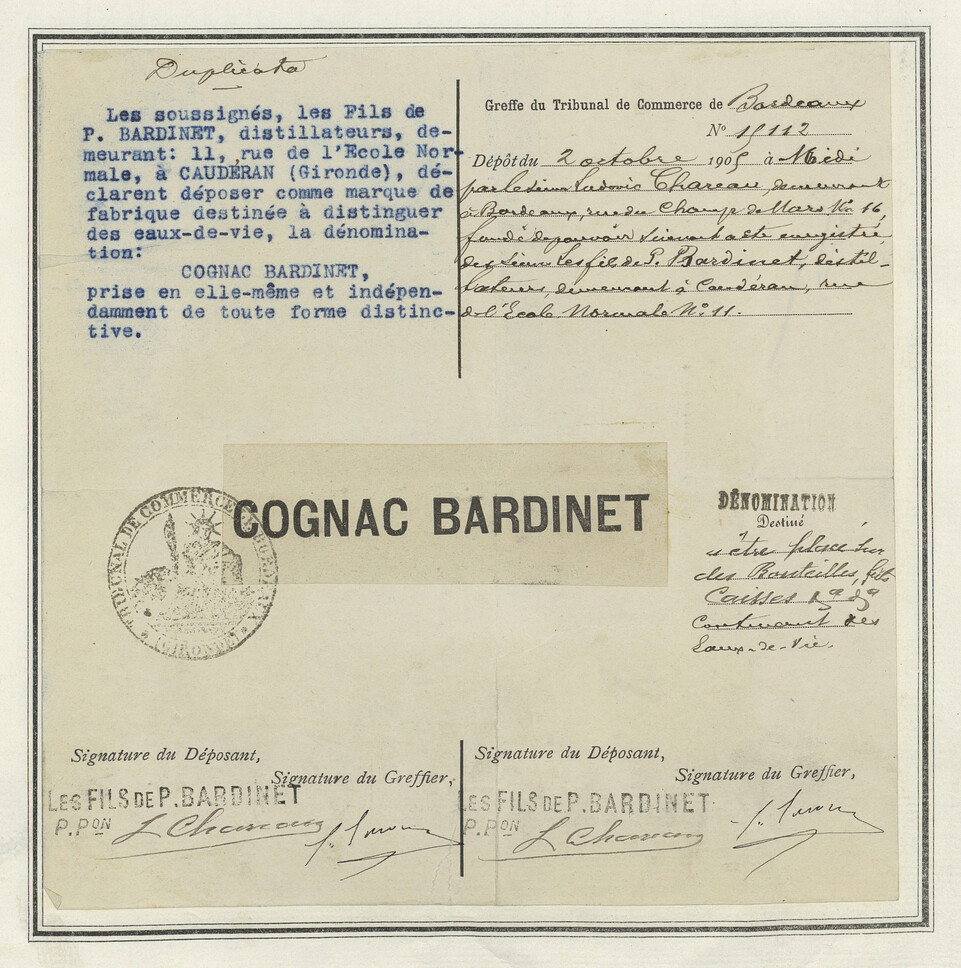 Duplicata
Les soussignés, les Fils de
P. BARDINET, distillateurs, de-
meurant: 11, rue de l'Ecole Nor-
male, à CAUDERAN (Gironde), dé-
clarent déposer comme marque de
fabrique destinée à distinguer
des eaux-de-vie, la dénomina-
tion:
COGNAC BARDINET,
prise en elle-même et indépen-
damment de toute forme distinc-
tive.
Greffe du Tribunal de Commerce de Bordeaux
N° 15112
Dépôt du 2 octobre 1905 à Midi
par le sieur Ludovic Chareau, demeurant
à Bordeaux, rue du Champ de Mars N° 16,
fondé de pouvoir suivant acte enregistré
des sieurs Les fils de P. Bardinet, distil-
lateurs, demeurant à Caudéran, rue
de l'École Normale N° 11.
COGNAC BARDINET
TRIBUNAL DE COMMERCE BORDEAUX
(GIRONDE)
DÉNOMINATION
Destiné
à être placé sur
des Bouteilles, fûts
Caisses
contenant des
Eaux-de-Vie.
Signature du Déposant,
Signature du Greffier,
LES FILS DE P. BARDINET
P. PON L Chareau
Signature du Déposant,
Signature du Greffier,
LES FILS DE P. BARDINET
P. PON L Chareau